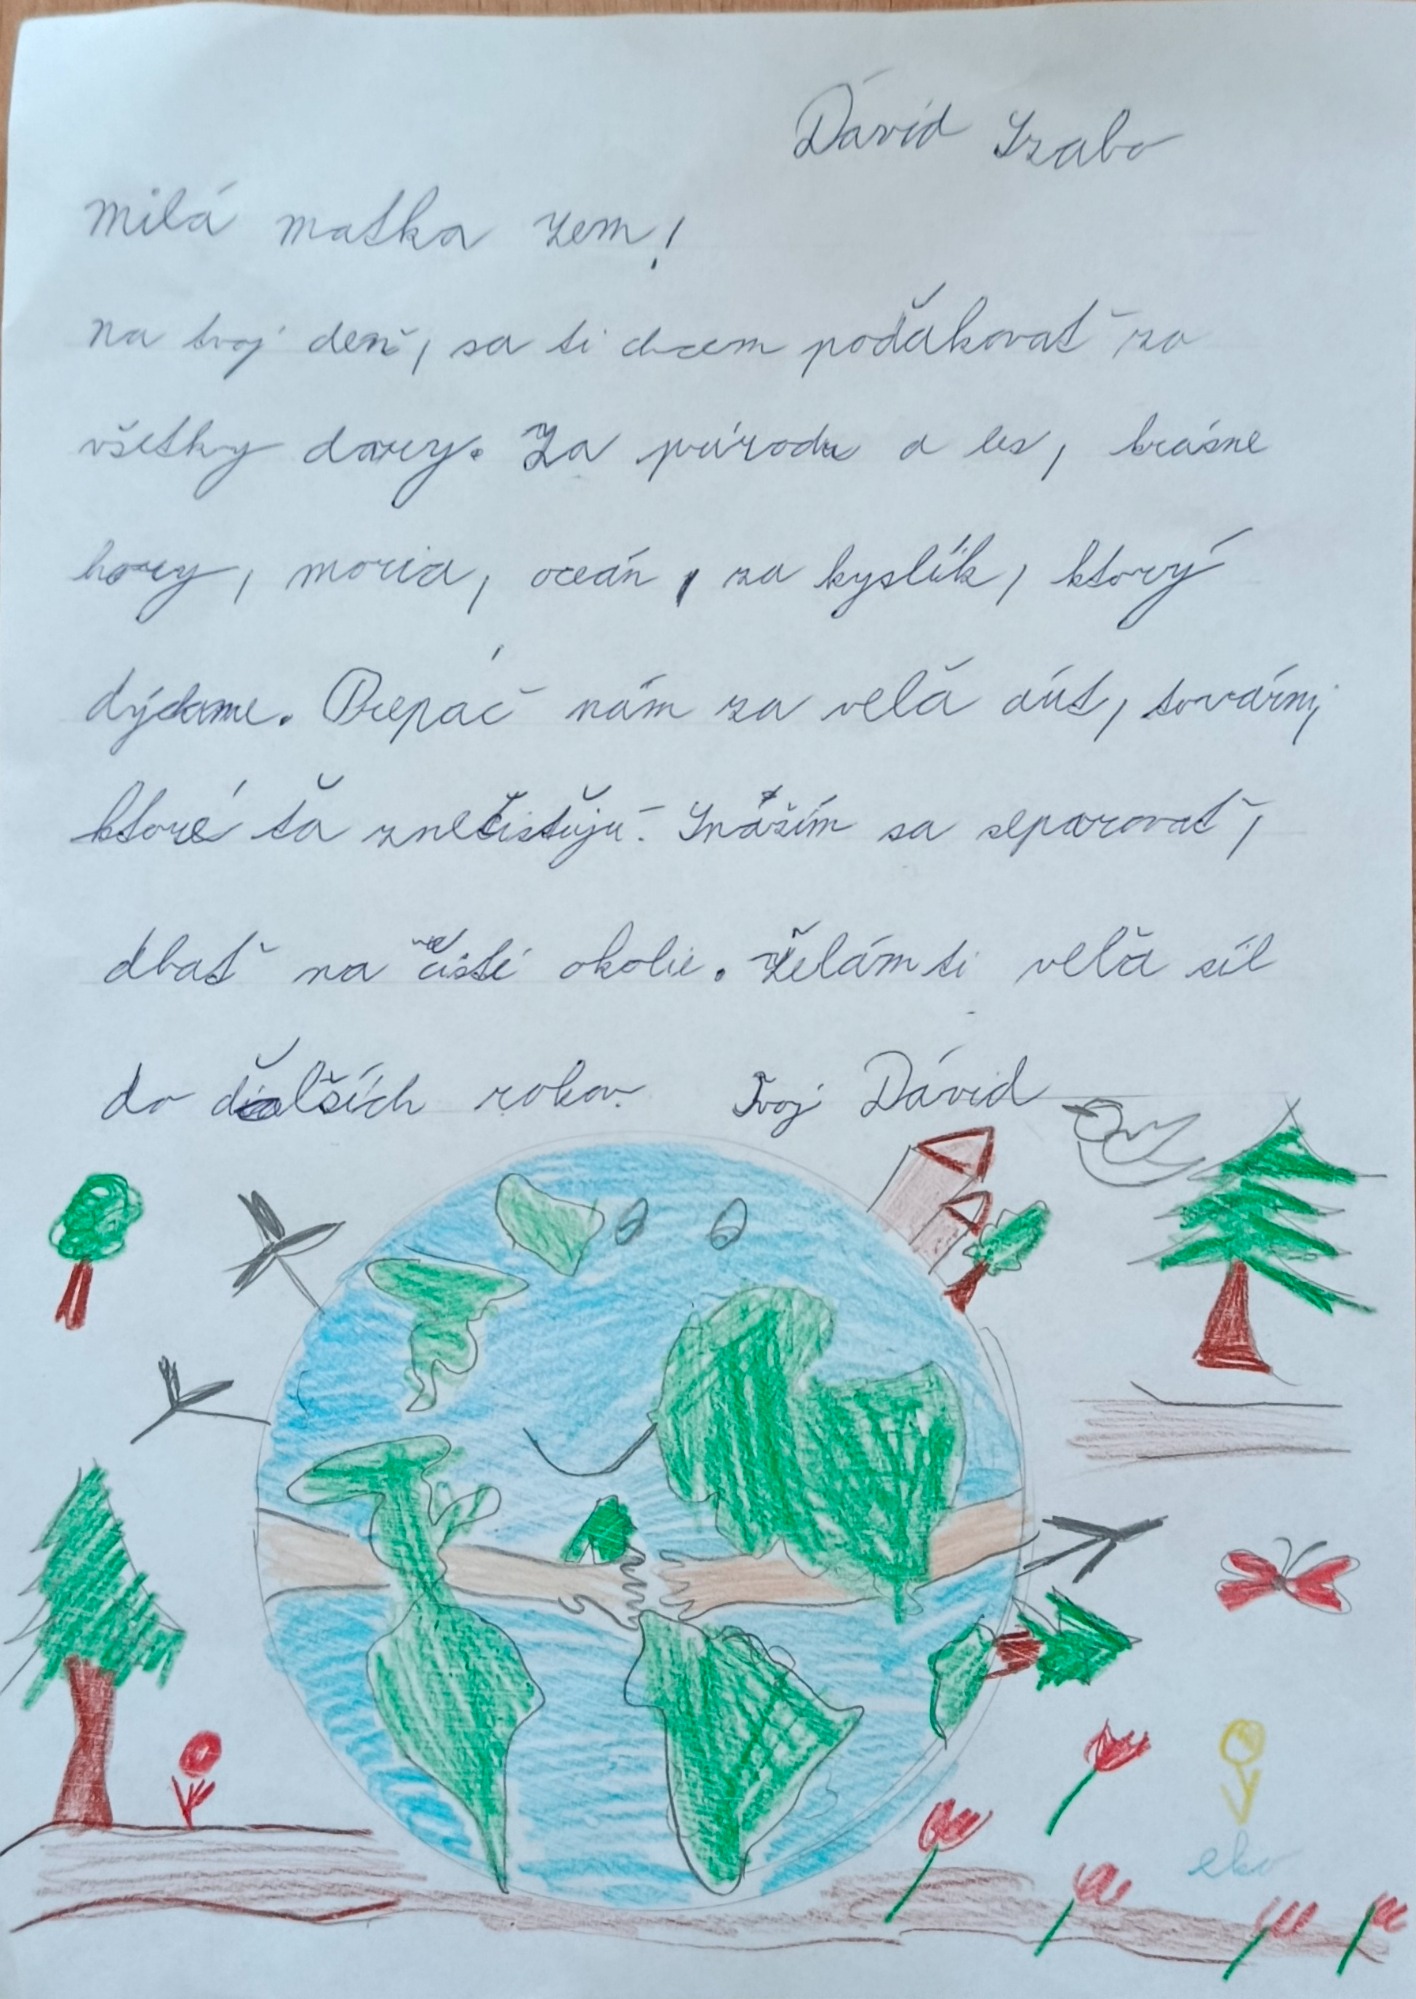 Dávid Szabo
Milá matka Zem!
na tvoj deň, sa ti chcem poďakovať za
všetky dary. Za prírodu a les, krásne
hory, moria, oceán, za kyslík, ktorý
dýchame. Prepáč nám za veľa áut, tovární,
ktoré ťa znečisťujú. Snažím sa separovať,
dbať na čisté okolie. Želám ti veľa síl
do ďalších rokov. Tvoj Dávid
eko